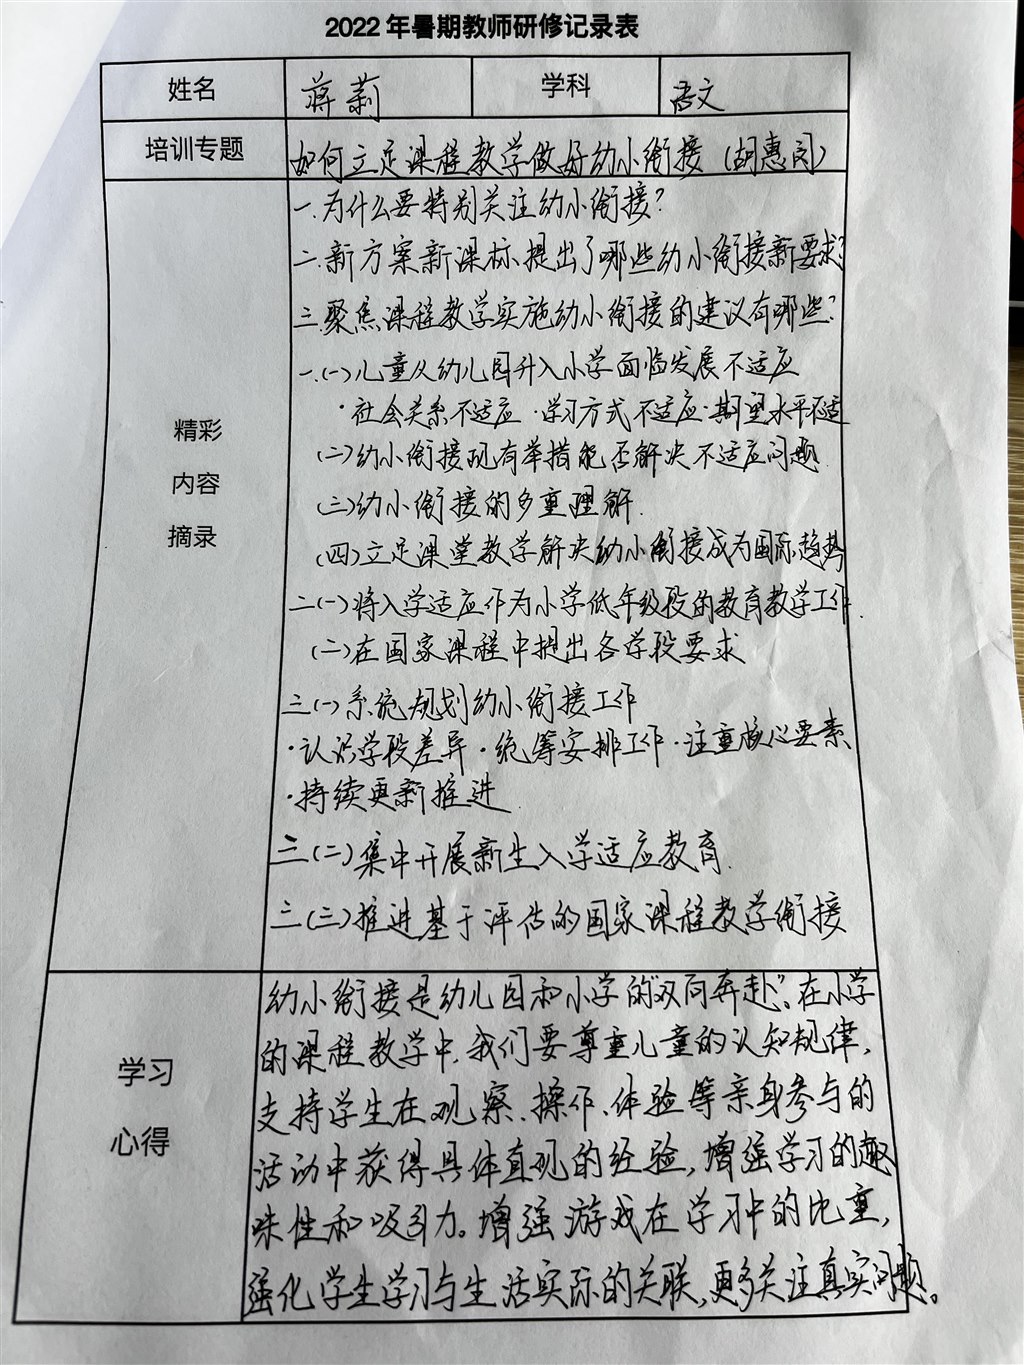 2022年暑期教师研修记录表
姓名 蒋莉 学科 语文
培训专题 如何立足课程教学做好幼小衔接（胡惠闵）
一.为什么要特别关注幼小衔接?
二.新方案新课标提出了哪些幼小衔接新要求?
三.聚焦课程教学实施幼小衔接的建议有哪些?
一.(一)儿童从幼儿园升入小学面临发展不适应
·社会关系不适应·学习方式不适应·期望水平不适
(二)幼小衔接现有举措能否解决不适应问题.
(三)幼小衔接的多重理解.
(四)立足课堂教学解决幼小衔接成为国际趋势
二(一)将入学适应作为小学低年级段的教育教学工作.
(二)在国家课程中提出各学段要求
三(一)系统规划幼小衔接工作
·认识学段差异·统筹安排工作·注重核心要素
·持续更新推进
三(二)集中开展新生入学适应教育.
三(三)推进基于评估的国家课程教学衔接
精彩
内容
摘录
学习
心得
幼小衔接是幼儿园和小学的“双向奔赴”。在小学
的课程教学中,我们要尊重儿童的认知规律,
支持学生在观察、操作、体验等亲身参与的
活动中获得具体直观的经验,增强学习的趣
味性和吸引力。增强游戏在学习中的比重,
强化学生学习与生活实际的关联,更多关注真实问题。